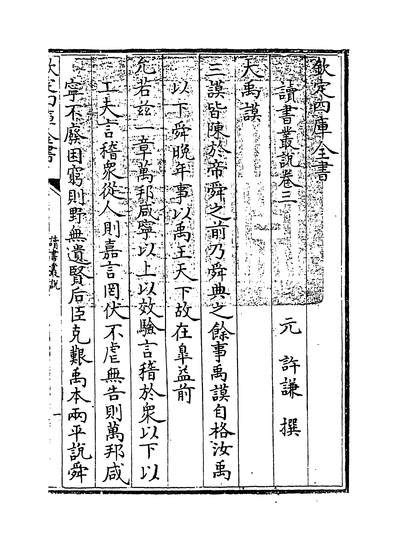 欽定四庫全書
讀書叢說卷三
元 許謙 撰
大禹謨
三謨皆陳於帝舜之前乃舜典之餘事禹謨自格汝禹
以下舜晚年事以禹王天下故在臯益前
允若茲一章萬邦咸寧以上以效驗言稽於衆以下以
工夫言稽衆從人則嘉言罔伏不虐無告則萬邦咸
寧不廢困窮則野無遺賢后臣克艱禹本兩平說舜
欽定四庫全書
讀書叢說
一